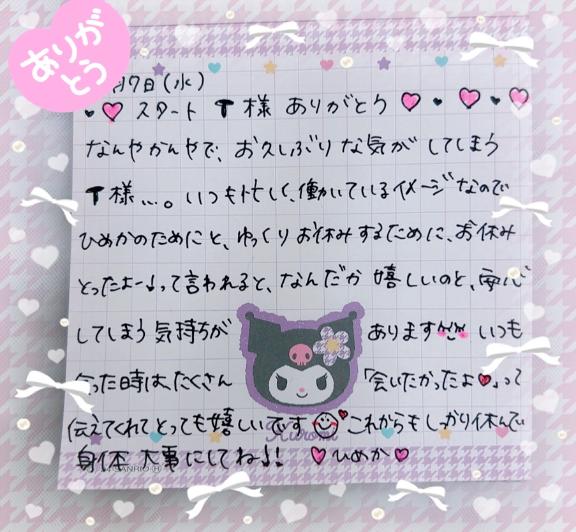 ありがとう
月7日(水)
・♥スタート T様 ありがとう♥・♥・♥
なんやかんやで、お久しぶりな気がしてしまう
T様…。いつも忙しく、働いているイメージなので
ひめかのためにと、ゆっくりお休みするために、お休み
とったよー♩って言われると、なんだか嬉しいのと、安心
してしまう気持ちが あります いつも
会った時は、たくさん 「会いたかったよ♥」って
伝えてくれてとっても嬉しいです これからもしっかり休んで
身体 大事にしてね♩! ♥ひめか♥
Kuromi
SANRIO